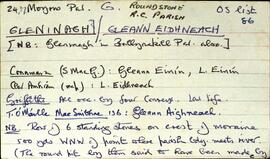 24.17 Moyrus Pal. G. ROUNDSTONE OS list
R.C. PARISH 86
GLENINAGH / GLEANN EIDHNEACH
[NB: Gleninagh in Ballynahill Pal. also.]
Connemara (S MacG.): Gleann Einín, L. Einín
Anton pub. ref. : L. Eidhneach
Griffiths All occ. by four Conveys. Lat. life.
T. O'Máille Mac Smithne 136 : Gleann Aighneach.
NB Row of 6 standing stones on crest of moraine
500 yds WNW of point where parish bdy. meets river
(The round hill by them said to have been made by